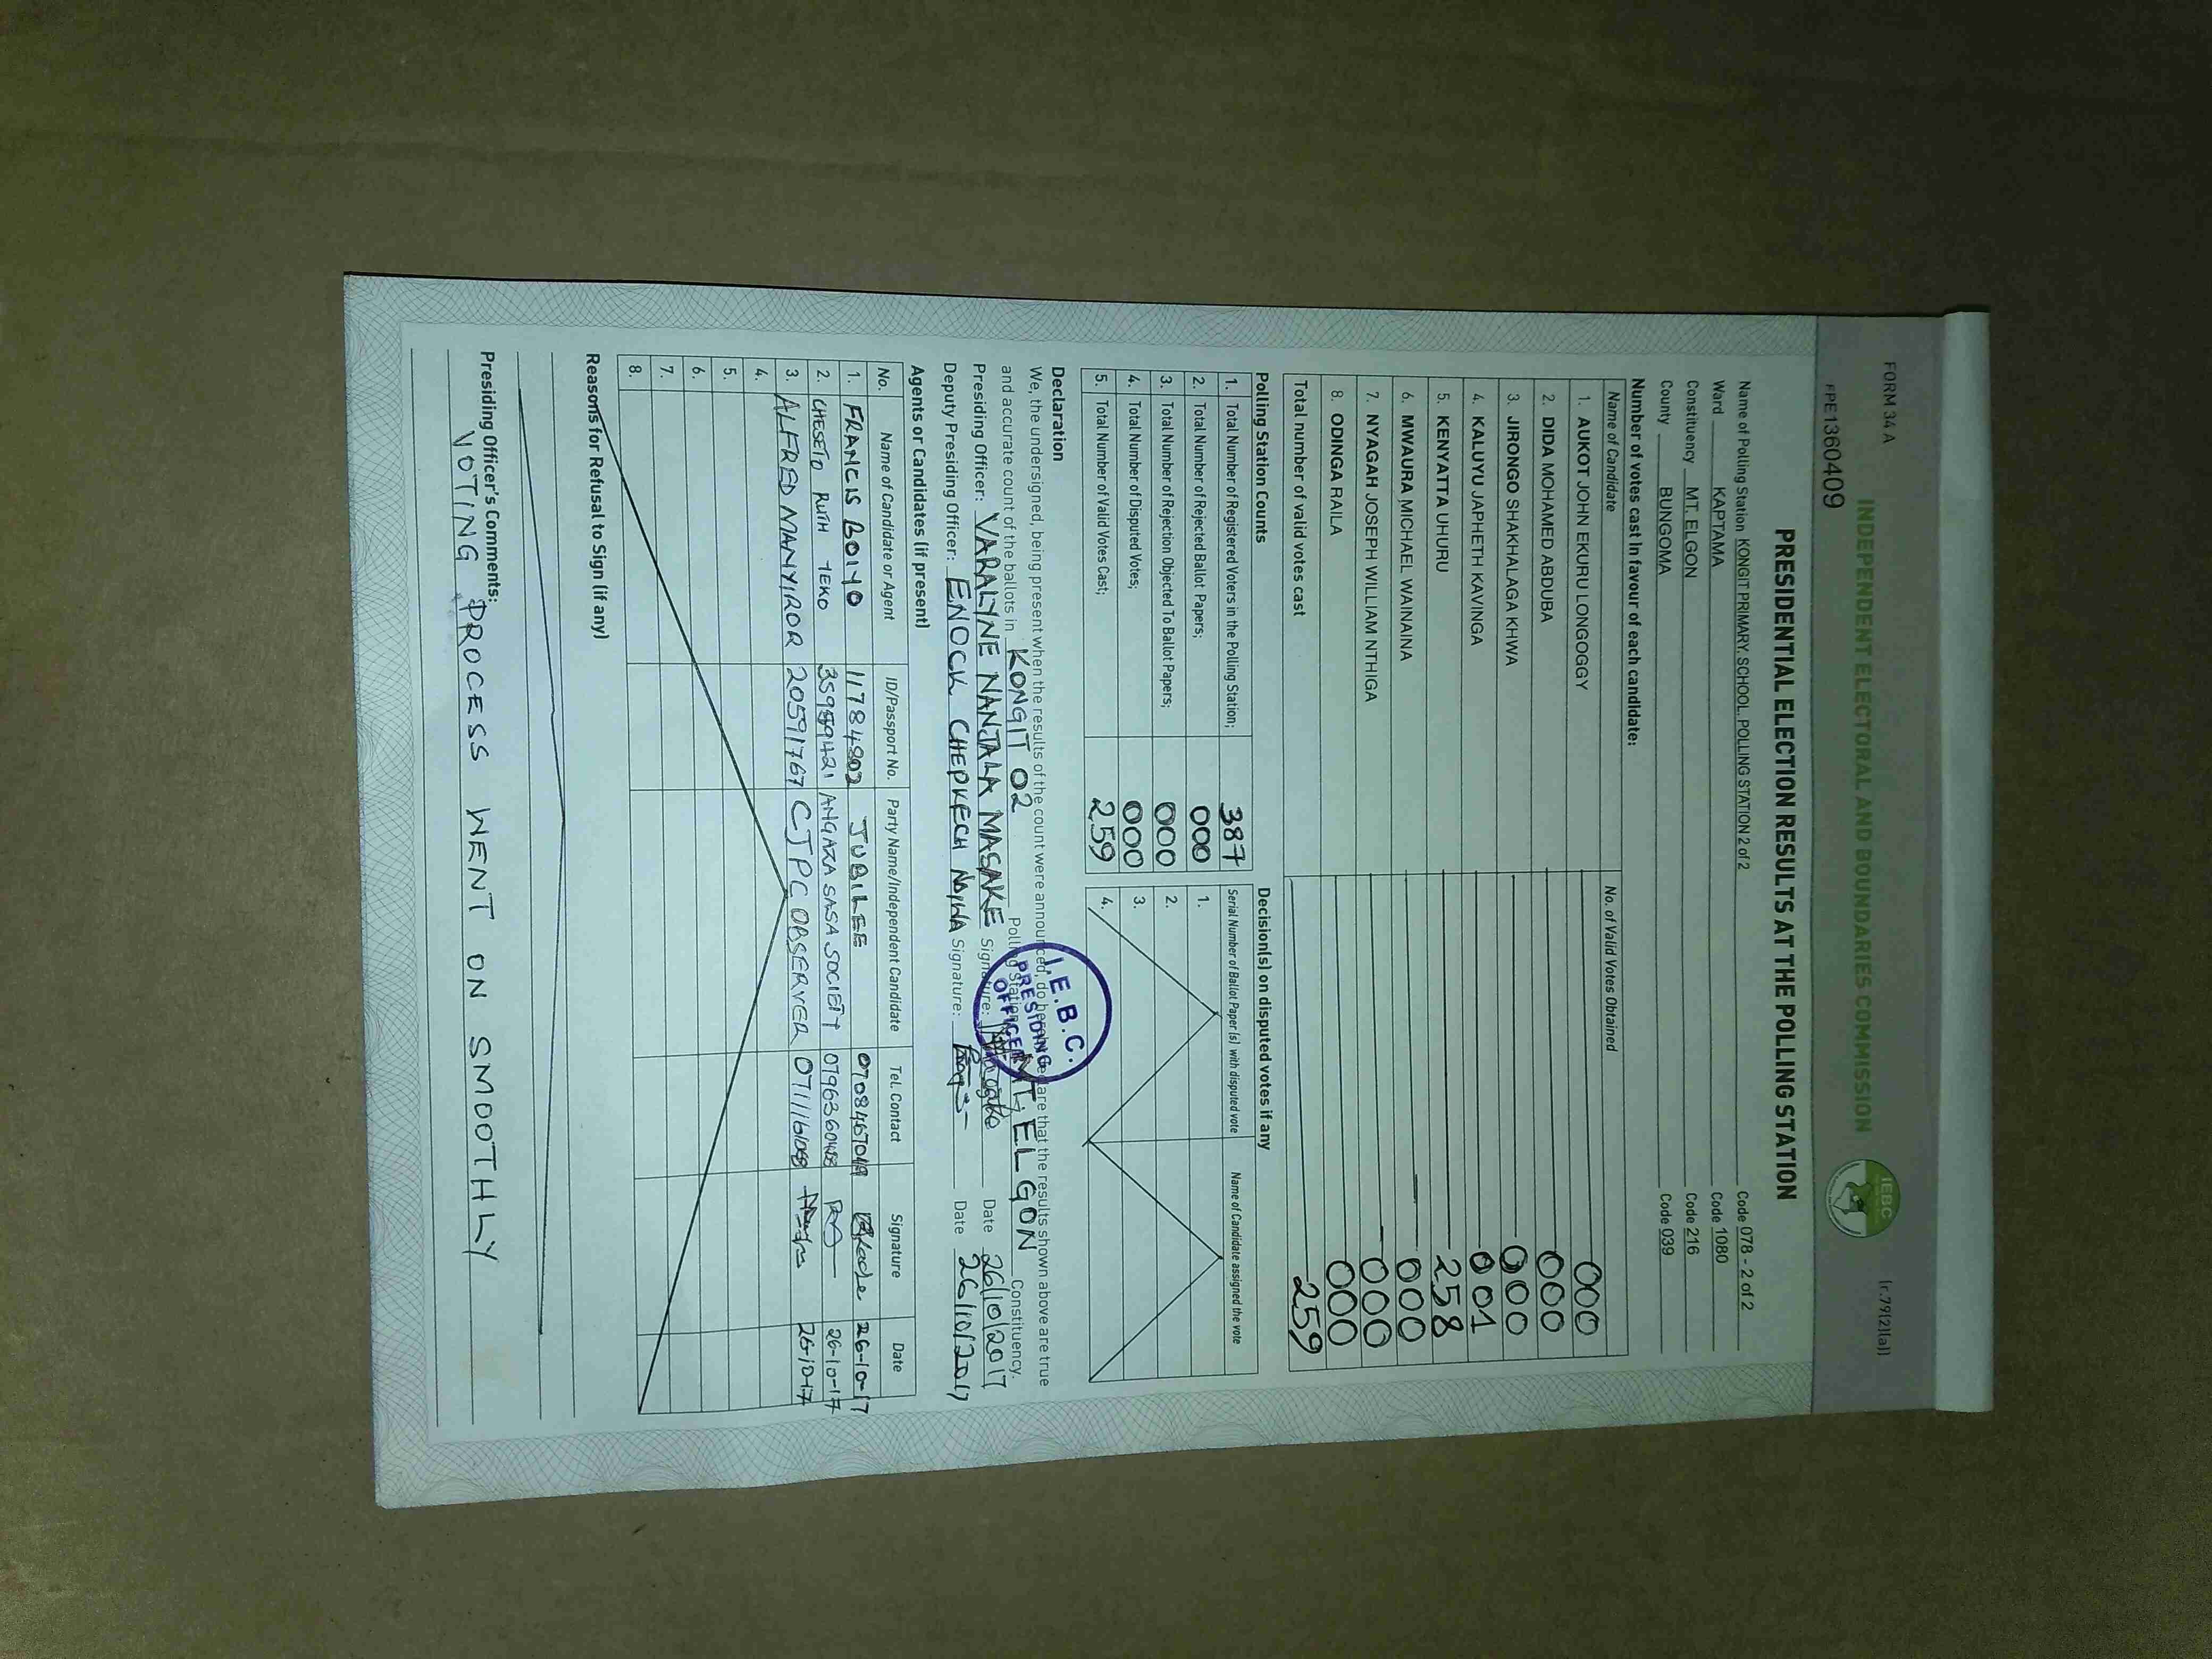 FORM 34 A
(r.79(2)(a))
INDEPENDENT ELECTORAL AND BOUNDARIES COMMISSION
IEBC
PPE1360409
PRESIDENTIAL ELECTION RESULTS AT THE POLLING STATION
Name of Polling Station KONGIT PRIMARY. SCHOOL. POLLING STATION 2 of 2 Code 078 - 2 of 2
Ward KAPTAMA Code 1080
Constituency MT. ELGON Code 216
County BUNGOMA Code 039
Number of votes cast in favour of each candidate:
Name of Candidate No. of Valid Votes Obtained
1. AUKOT JOHN EKURU LONGOGGY 000
2. DIDA MOHAMED ABDUBA 000
3. JIRONGO SHAKHALAGA KHWA 000
4. KALUYU JAPHETH KAVINGA 001
5. KENYATTA UHURU 258
6. MWAURA MICHAEL WAINAINA 000
7. NYAGAH JOSEPH WILLIAM NTHIGA 000
8. ODINGA RAILA 000
Total number of valid votes cast 259
Polling Station Counts Decision(s) on disputed votes if any
1. Total Number of Registered Voters in the Polling Station; 387
2. Total Number of Rejected Ballot Papers; 000
3. Total Number of Rejection Objected To Ballot Papers; 000
4. Total Number of Disputed Votes; 000
5. Total Number of Valid Votes Cast; 259
Serial Number of Ballot Paper (s) with disputed vote Name of Candidate assigned the vote
1.
2.
3.
4.
Declaration
We, the undersigned, being present when the results of the count were announced, do hereby declare that the results shown above are true
and accurate count of the ballots in KONGIT 02 Polling Station MT. ELGON Constituency.
Presiding Officer: VARALYNE NANJALA MASAKE Signature: Date 26/10/2017
Deputy Presiding Officer: ENOCK CHEPKECH Signature: Date 26/10/2017
I.E.B.C.
PRESIDING
OFFICER
Agents or Candidates (if present)
No. Name of Candidate or Agent ID/Passport No. Party Name/Independent Candidate Tel. Contact Signature Date
1. FRANCIS BOIYO 11784802 JUBILEE 26-10-17
2. CHESETO RUTH TEKO ANGAZA SASA SOCIETY 26-10-17
3. ALFRED MANYIROR 20591767 CJPC OBSERVER 26-10-17
4.
5.
6.
7.
8.
Reasons for Refusal to Sign (if any)
Presiding Officer's Comments:
VOTING PROCESS WENT ON SMOOTHLY